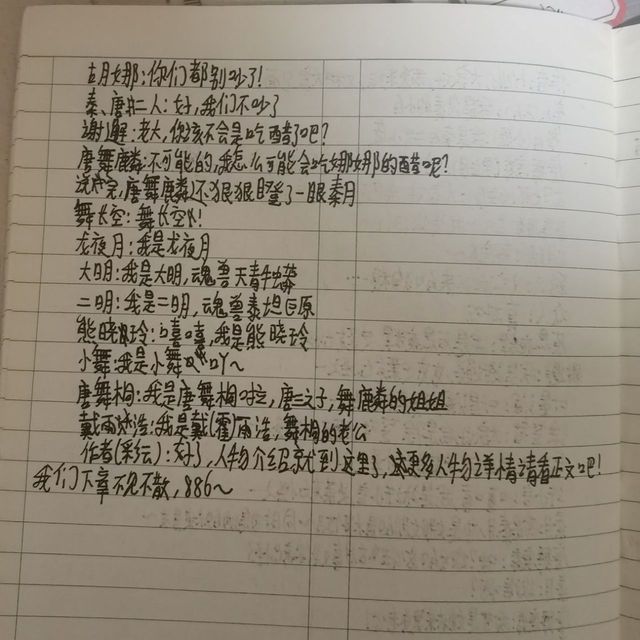 古月娜:你们都别吵了!
秦、唐二人:好,我们不吵了
谢邂:老大,你该不会是吃醋了吧?
唐舞麟:不可能的,我怎么可能会吃娜娜的醋呢?
说完,唐舞麟还狠狠瞪了一眼秦月
舞长空:舞长空!
龙夜月:我是龙夜月
大明:我是大明,魂兽天青牛蟒
二明:我是二明,魂兽泰坦巨原
熊晓玲:嘻嘻,我是熊晓玲
小舞:我是小舞吖~
唐舞桐:我是唐舞桐,唐三之子,舞麟的姐姐
戴雨浩:我是戴(霍)雨浩,舞桐的老公
作者(彩云):好了,人物介绍就到这里了,更多人物详情请看正文吧!
我们下章不见不散,886~